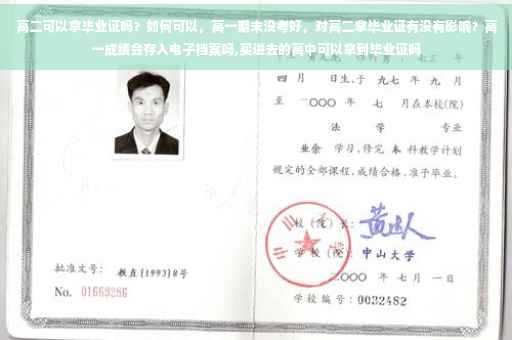 高二可以拿毕业证吗？如何可以，高一期末没考好，对高二拿毕业证有没有影响？高
一成绩会存入电子档案吗,买进去的高中可以拿到毕业证吗
四 月 日生,于 一九九七 年 九 月
至 二〇〇〇 年 七 月在本校(院)
法 学 专业
业余 学习,修完 本 科教学计划
规定的全部课程,成绩合格,准予毕业。
校(院)长:
学 校(院): 中山大学
二〇〇〇 年 七 月 一 日
批准文号: 教直[1993]8号
No. 01669286
学校编号: 0032482